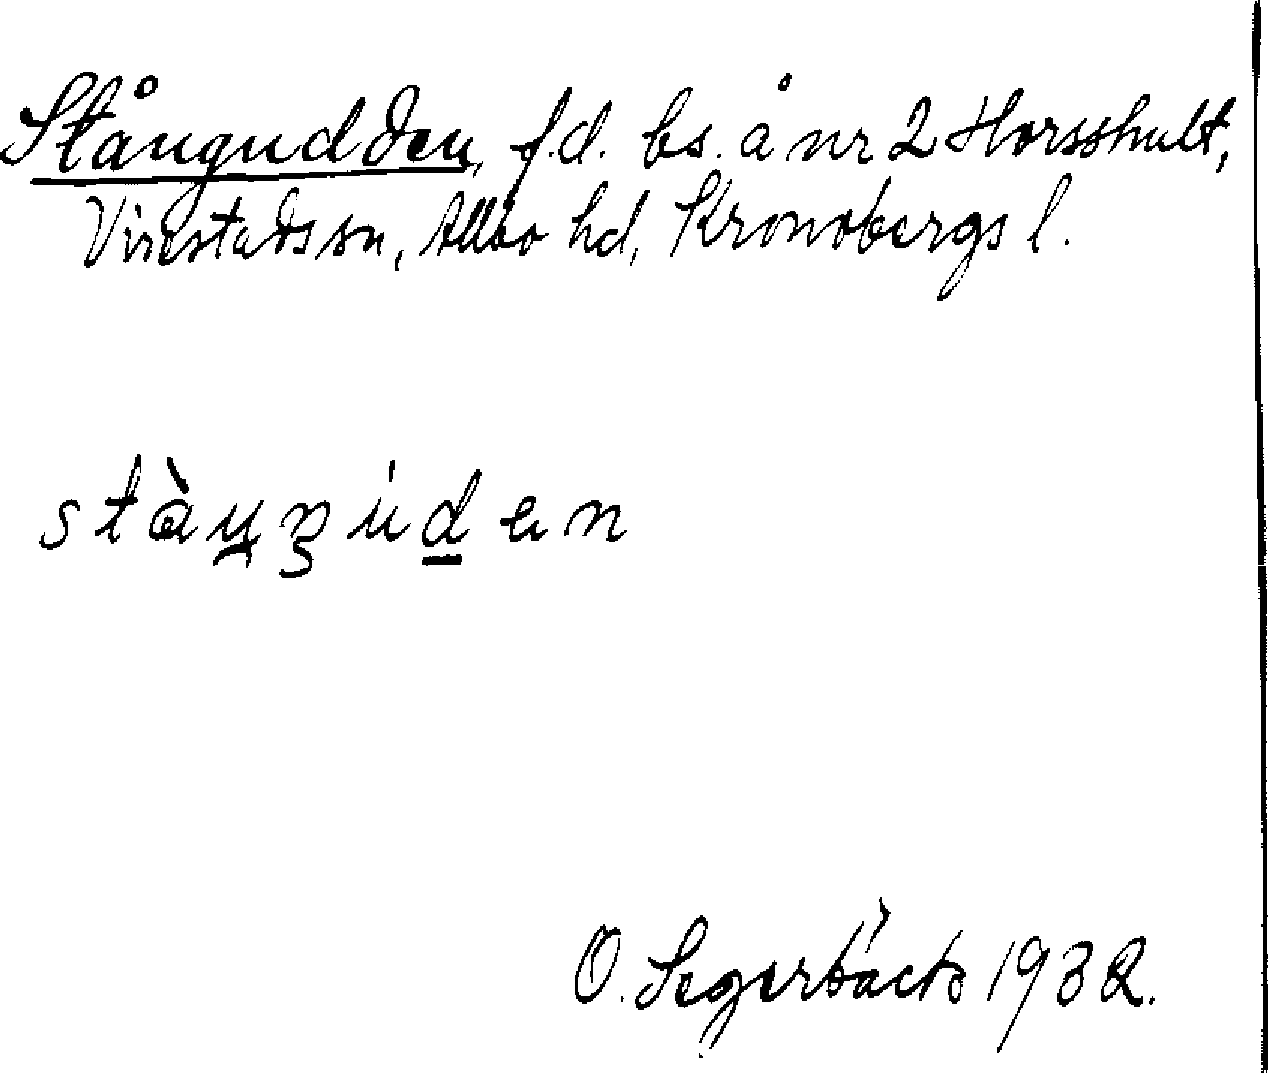 Stångudden, f.d. bs. å nr 2 Horsshult,
Virestads sn, Allbo hd, Kronobergs l.
O. Segerbäck 1932.